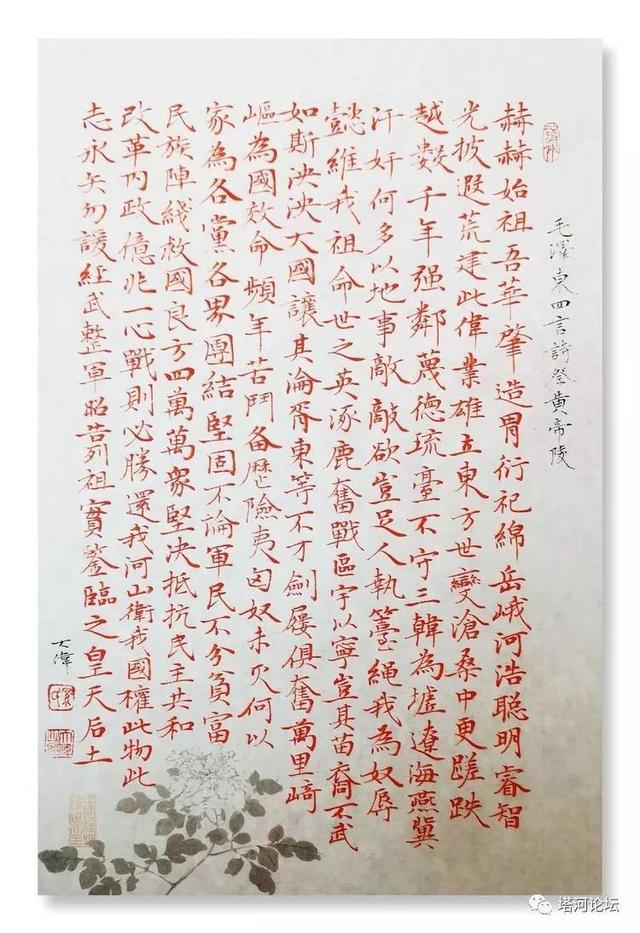 毛澤東四言詩祭黃帝陵
赫赫始祖吾華肇造胄衍祀綿岳峨河浩聰明睿智
光披遐荒建此偉業雄立東方世變滄桑中更蹉跌
越數千年强鄰蔑德琉臺不守三韓為墟遼海燕冀
汗奸何多以地事敵敵欲豈足人執箠繩我為奴辱
懿維我祖命世之英涿鹿奮戰區宇以寧豈其苗裔不武
如斯泱泱大國讓其淪胥東等不才劍屨俱奮萬里崎
嶇為國效命頻年苦鬥备歷險夷匈奴未灭何以
家為各黨各界團結堅固不論軍民不分貧富
民族陣綫救國良方四萬萬衆堅决抵抗民主共和
改革內政億兆一心戰則必勝還我河山衛我國權此物此
志永矢勿諼經武整軍昭告列祖實鑒臨之皇天后土
大偉
塔河论坛